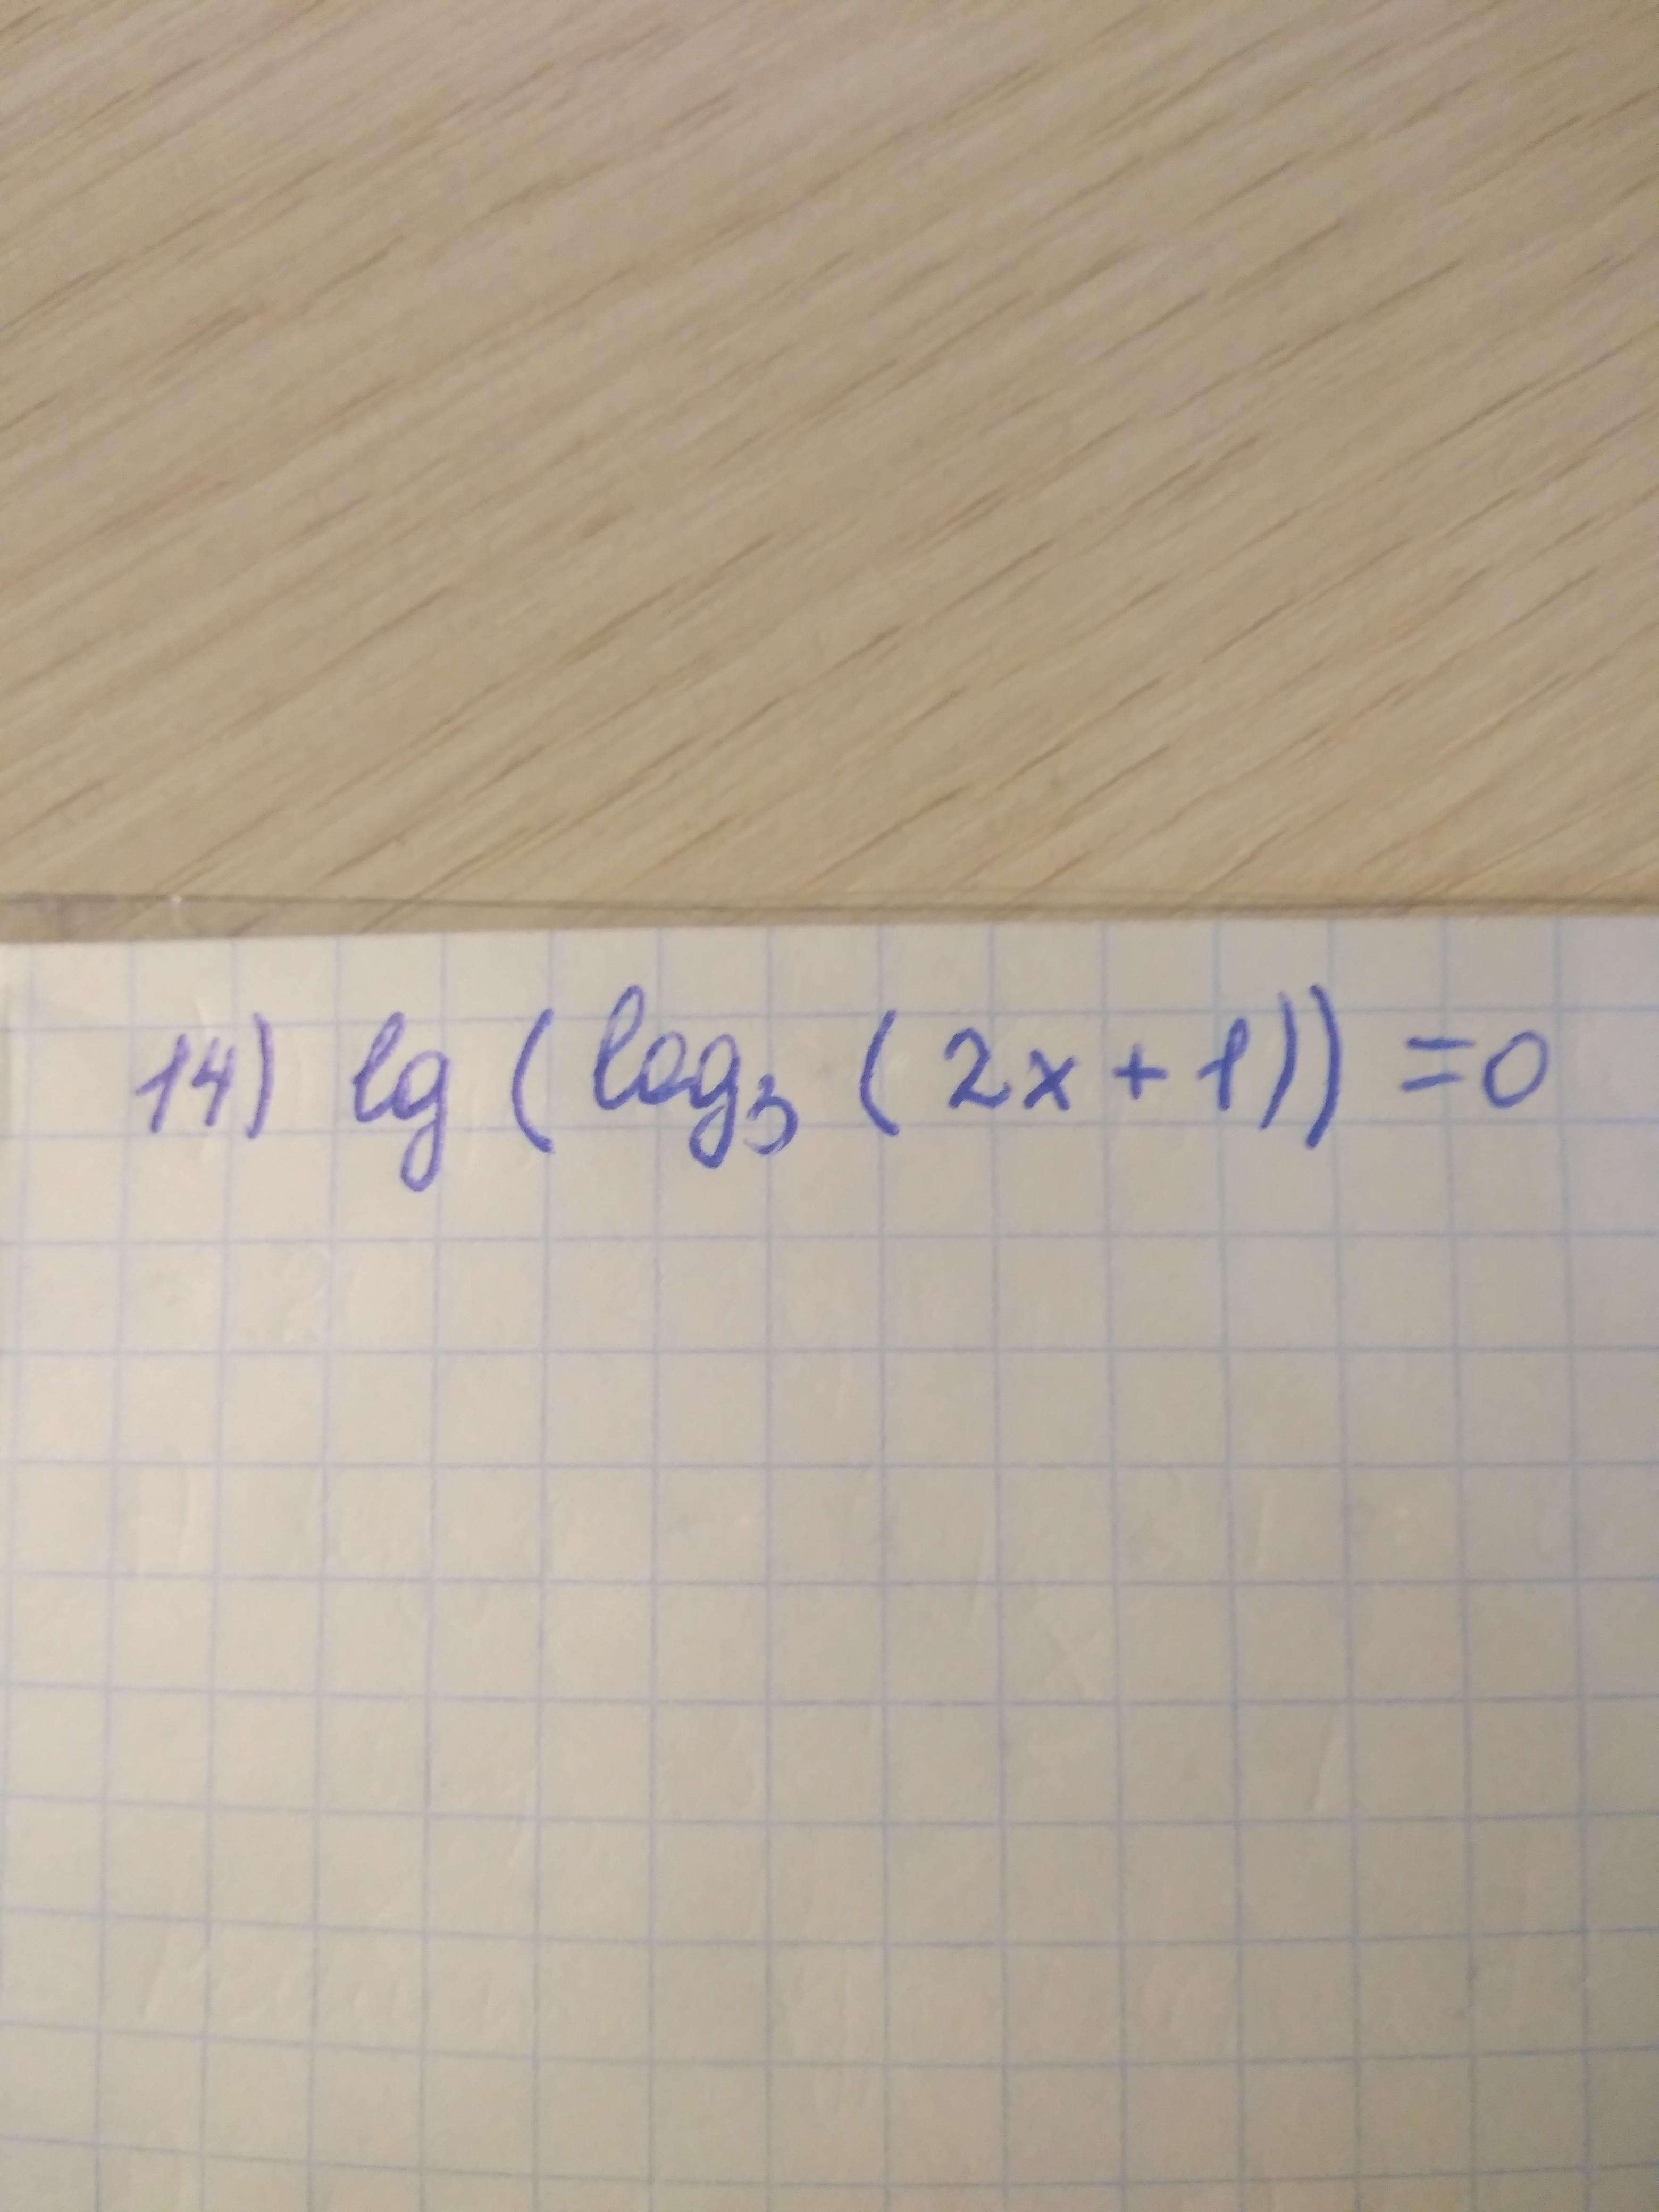 14) lg (log₃ (2x + 1)) = 0